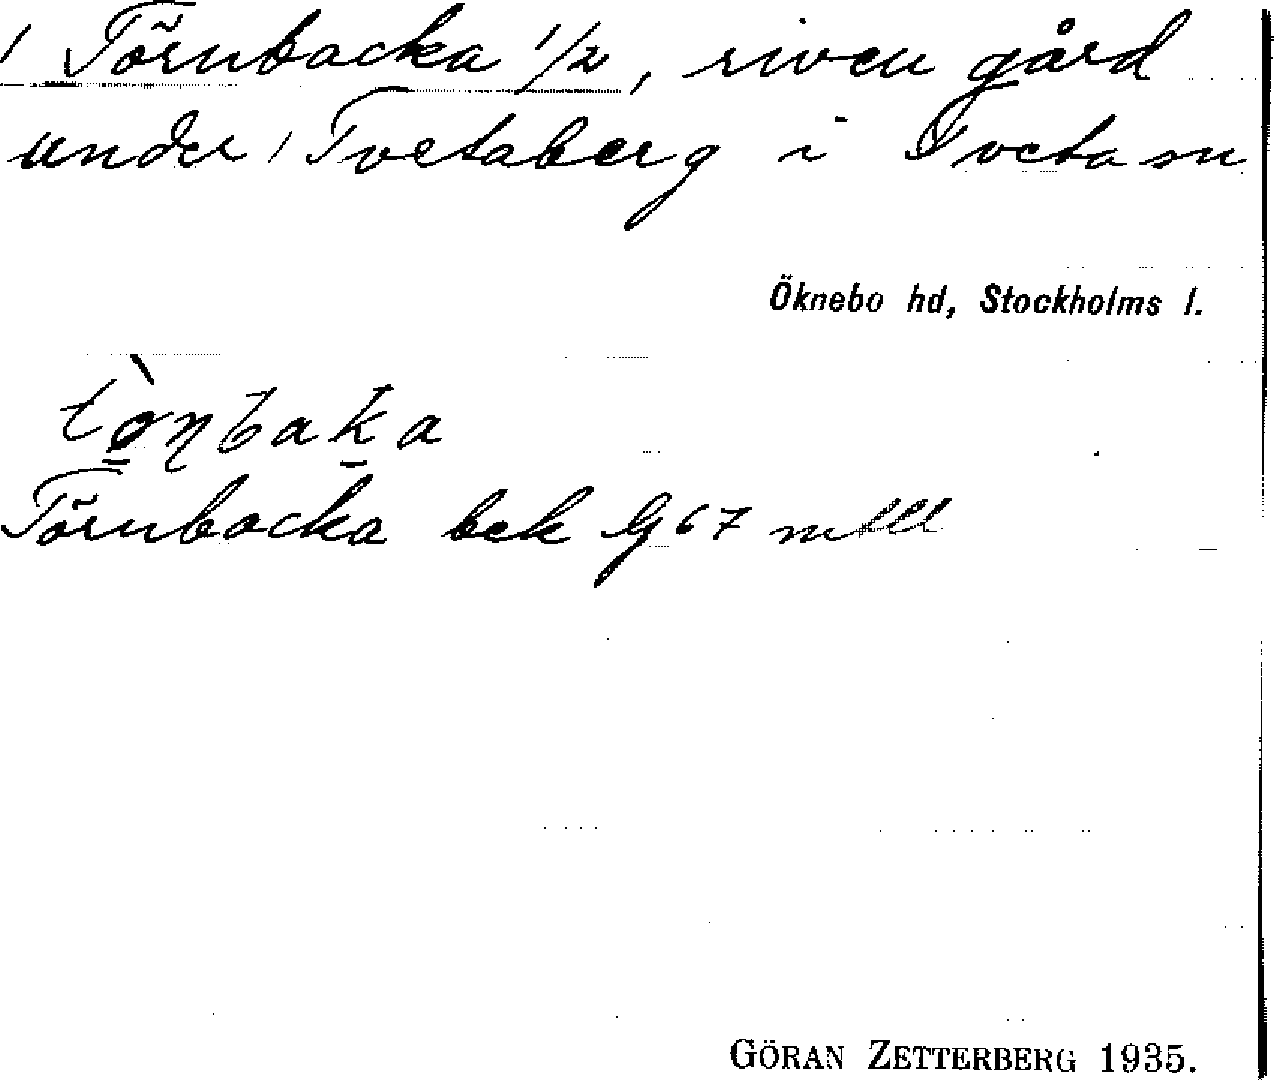 / Törnbacka 1/2, riven gård
under / Tvetaberg i Tveta sn
Öknebo hd, Stockholms l.
Törnbacka bek G 67
GÖRAN ZETTERBERG 1935.